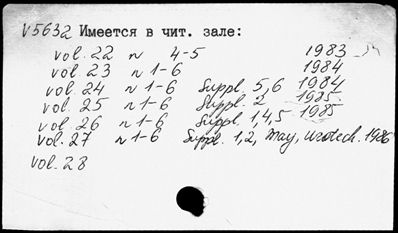 V5632 Имеется в чит. зале:
vol. 22 n 4-5 1983
vol 23 n 1-6 1984
vol. 24 n 1-6 Suppl. 5,6 1984
vol. 25 n 1-6 Suppl. 2 1985
vol 26 n 1-6 Suppl. 14,5 1985
vol. 27 n 1-6 Suppl. 1,2, May, 1986
vol. 28